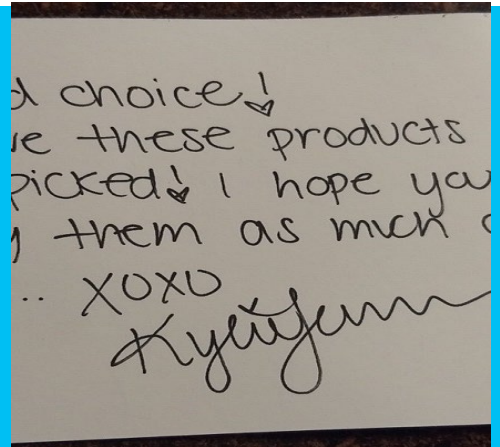 d choice!
ve these products
picked! I hope you
y them as much a
.. XOXO